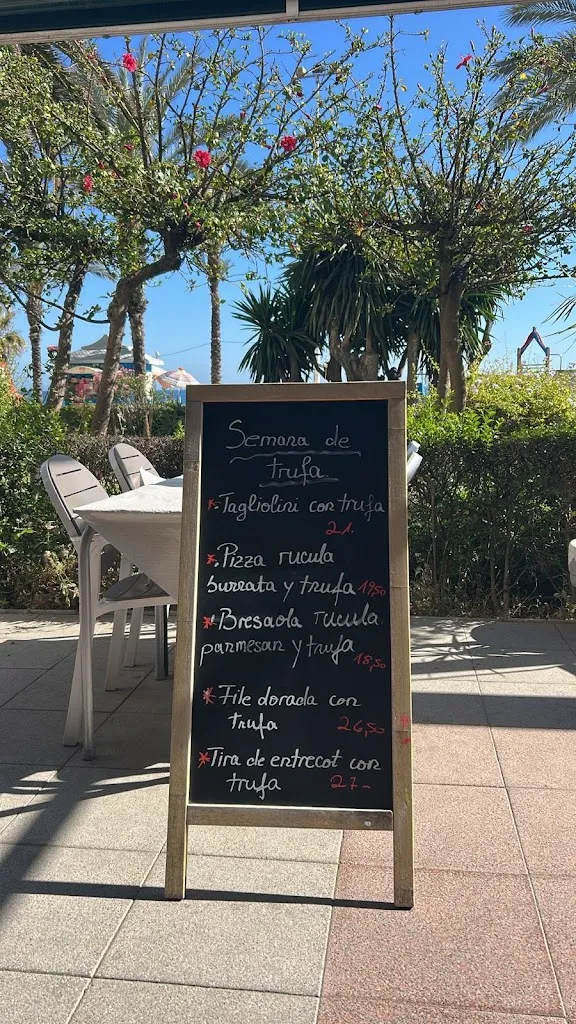 Semana de
trufa
*. Tagliolini con trufa
21.
*. Pizza rucula
burrata y trufa 19,50
* Bresaola rucula
parmesan y trufa
18,50
* File dorada con
trufa 26,50
* Tira de entrecot con
trufa 27-